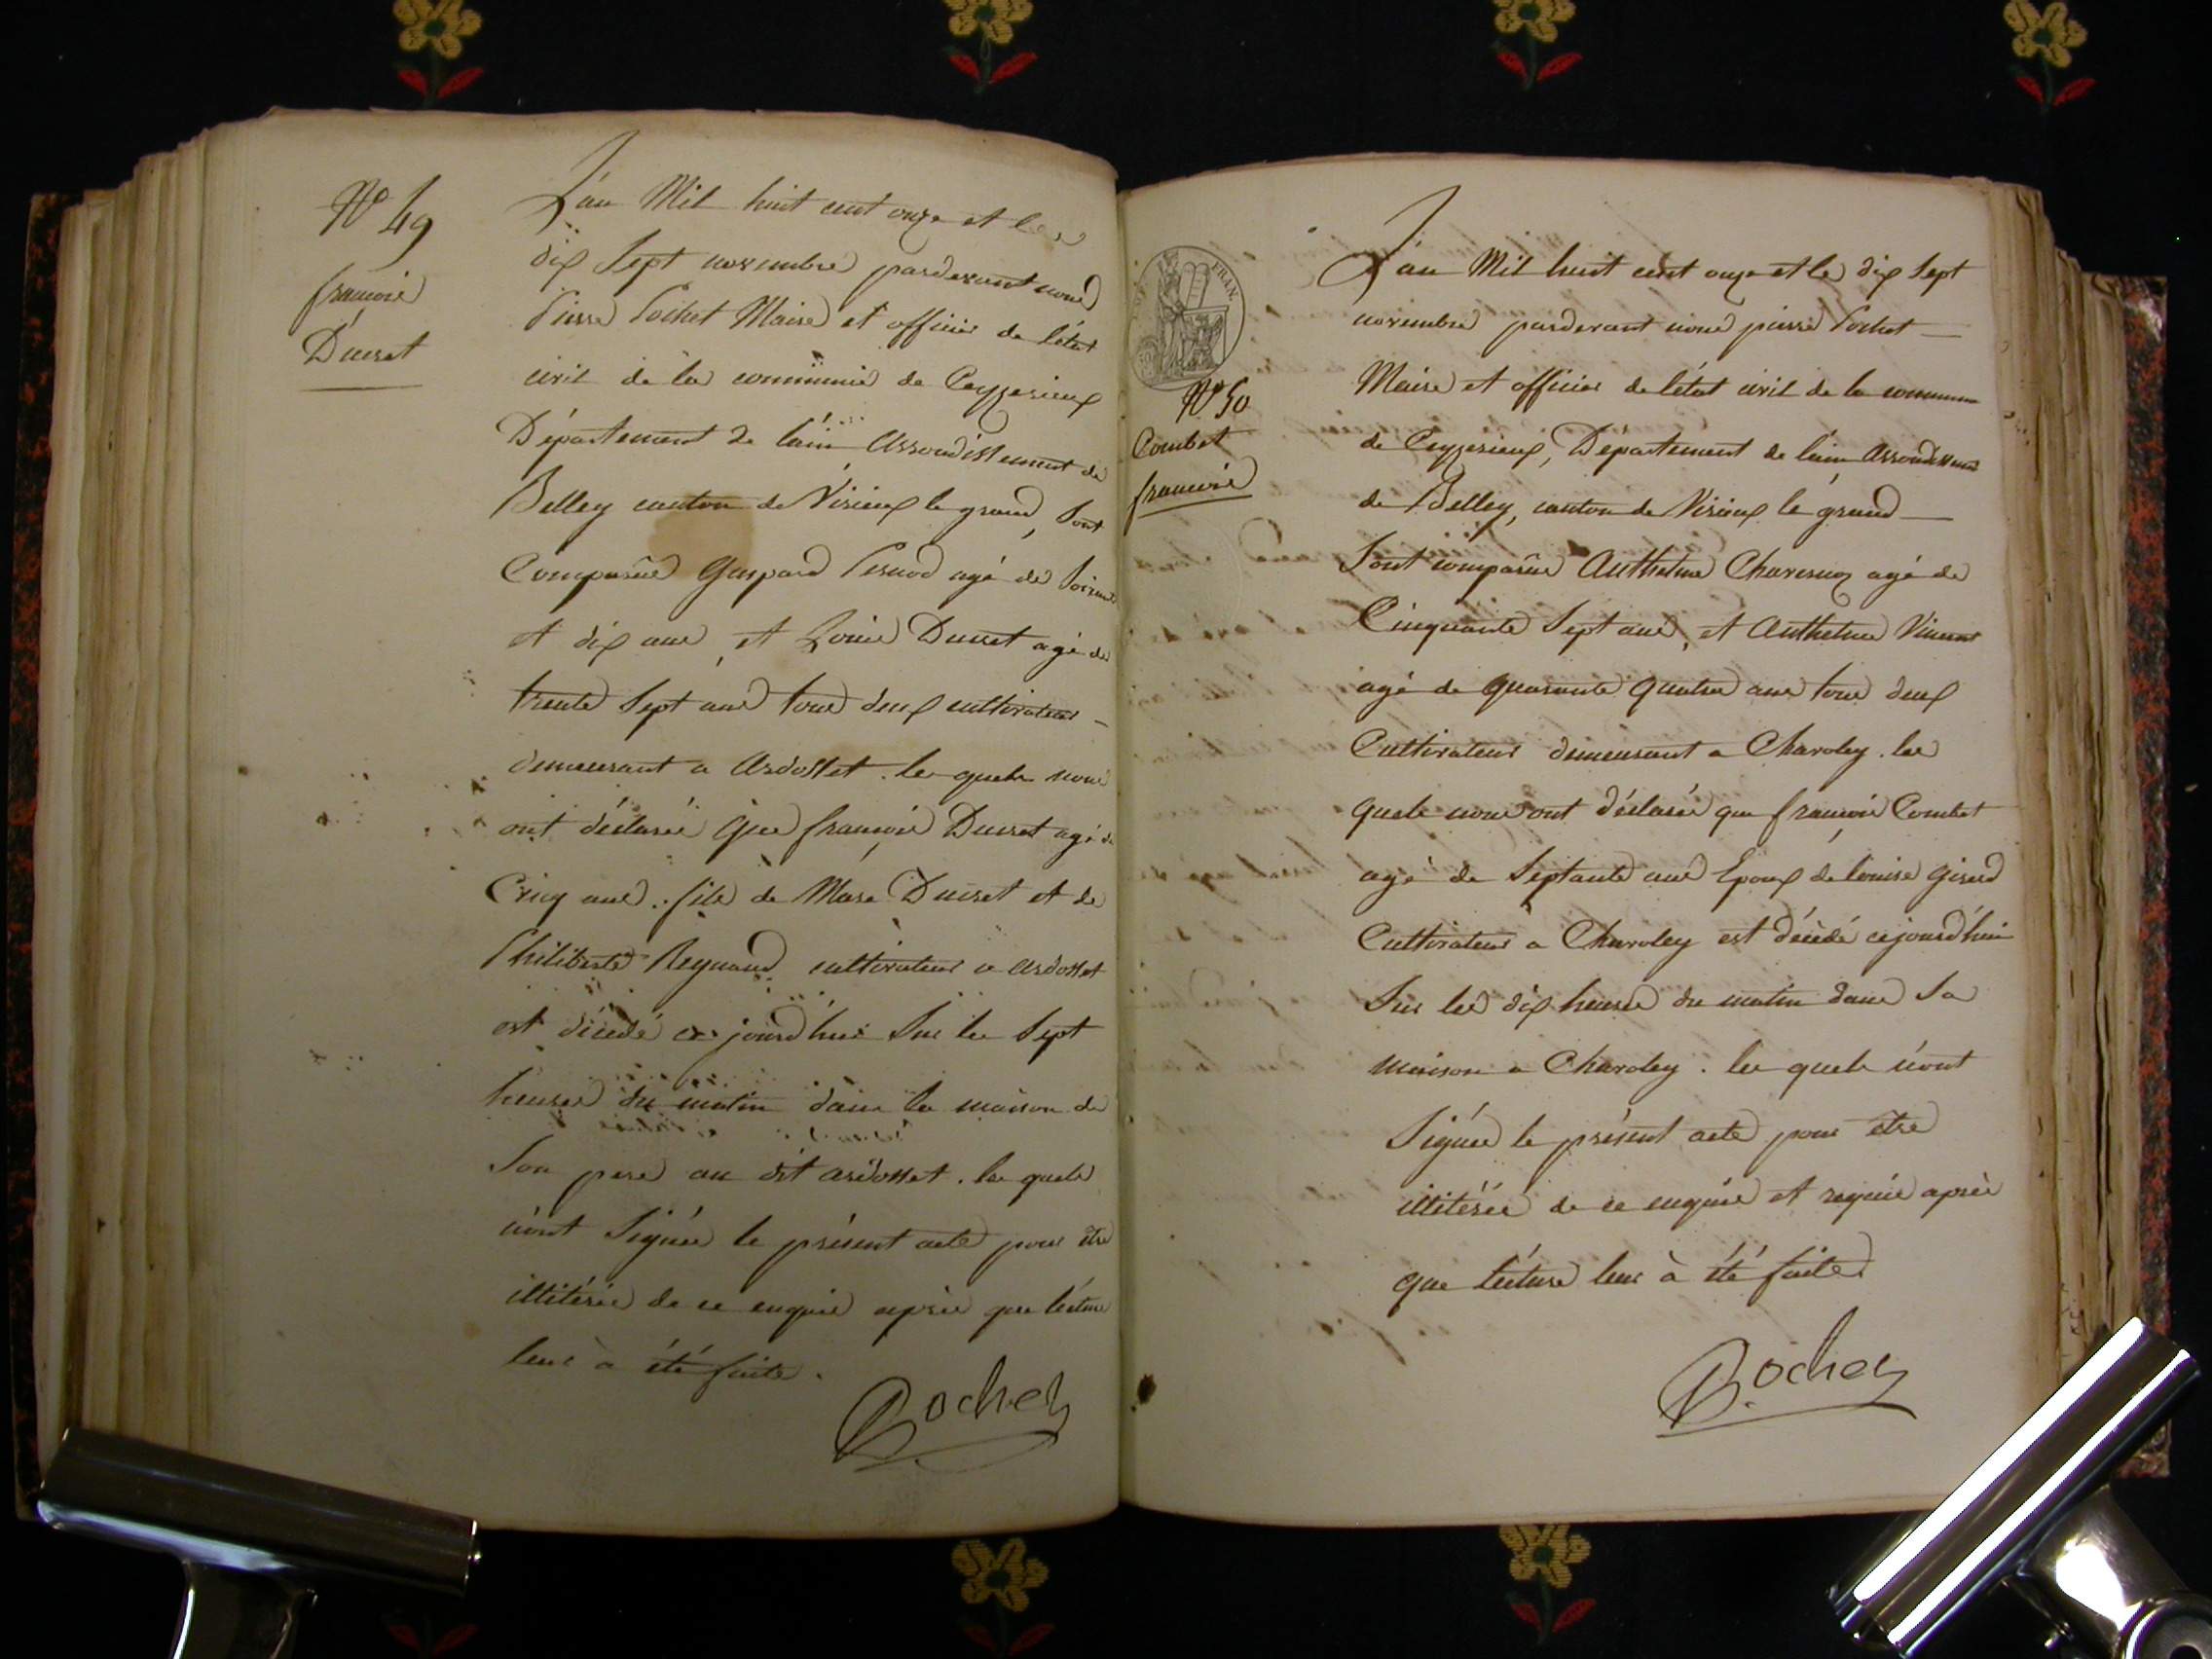 N° 49
françois
Ducret
L'an Mil huit cent onze et le
dix Sept novembre pardevant nous
Pierre Pochet Maire et officier de l'état
civil de la commune de Ceyzerieux
Département de l'ain Arrondissement de
Belley canton de Virieux le grand, Sont
Comparus Gaspard agé de Soixante
et dix ans, et Louis Ducret agé de
trente Sept ans tous deux cultivateurs
demeurant a Ardosset. les quels nous
ont déclarés que françois Ducret agé de
Cinq ans. fils de Marc Ducret et de
Philiberte Reynaud cultivateurs a ardosset
est décédé ce jourd'hui Sur les Sept
heures du matin dans la maison de
Son pere au dit ardosset. les quels
n'ont Signés le présent acte pour être
illitérés de ce enquis après que lecture
leur à été faite.
Pochet
FRAN.
N° 50
Combet
françois
L'an Mil huit cent onze et le dix Sept
novembre pardevant nous pierre Pochet
Maire et officier de l'état civil de la commune
de Ceyzerieux, Département de l'ain Arrondissement
de Belley, canton de Virieux le grand
Sont comparus Anthelme agé de
Cinquante Sept ans, et Anthelme Vincent
agé de quarante quatre ans tous deux
Cultivateurs demeurant a Charoley. les
quels nous ont déclarés que françois Combet
agé de Septante ans Epoux de louise girod
Cultivateur a Charoley est décédé cejourd'hui
Sur les dix heures du matin dans Sa
maison a Charoley. les quels n'ont
Signés le présent acte pour être
illitérés de ce enquis et requis après
que lecture leur à été faite
Pochet